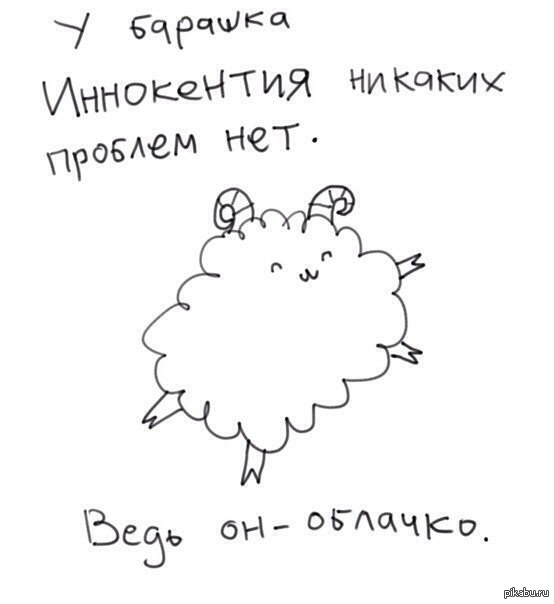 У барашка
Иннокентия никаких
проблем нет.
Ведь он - облачко.
pikabu.ru